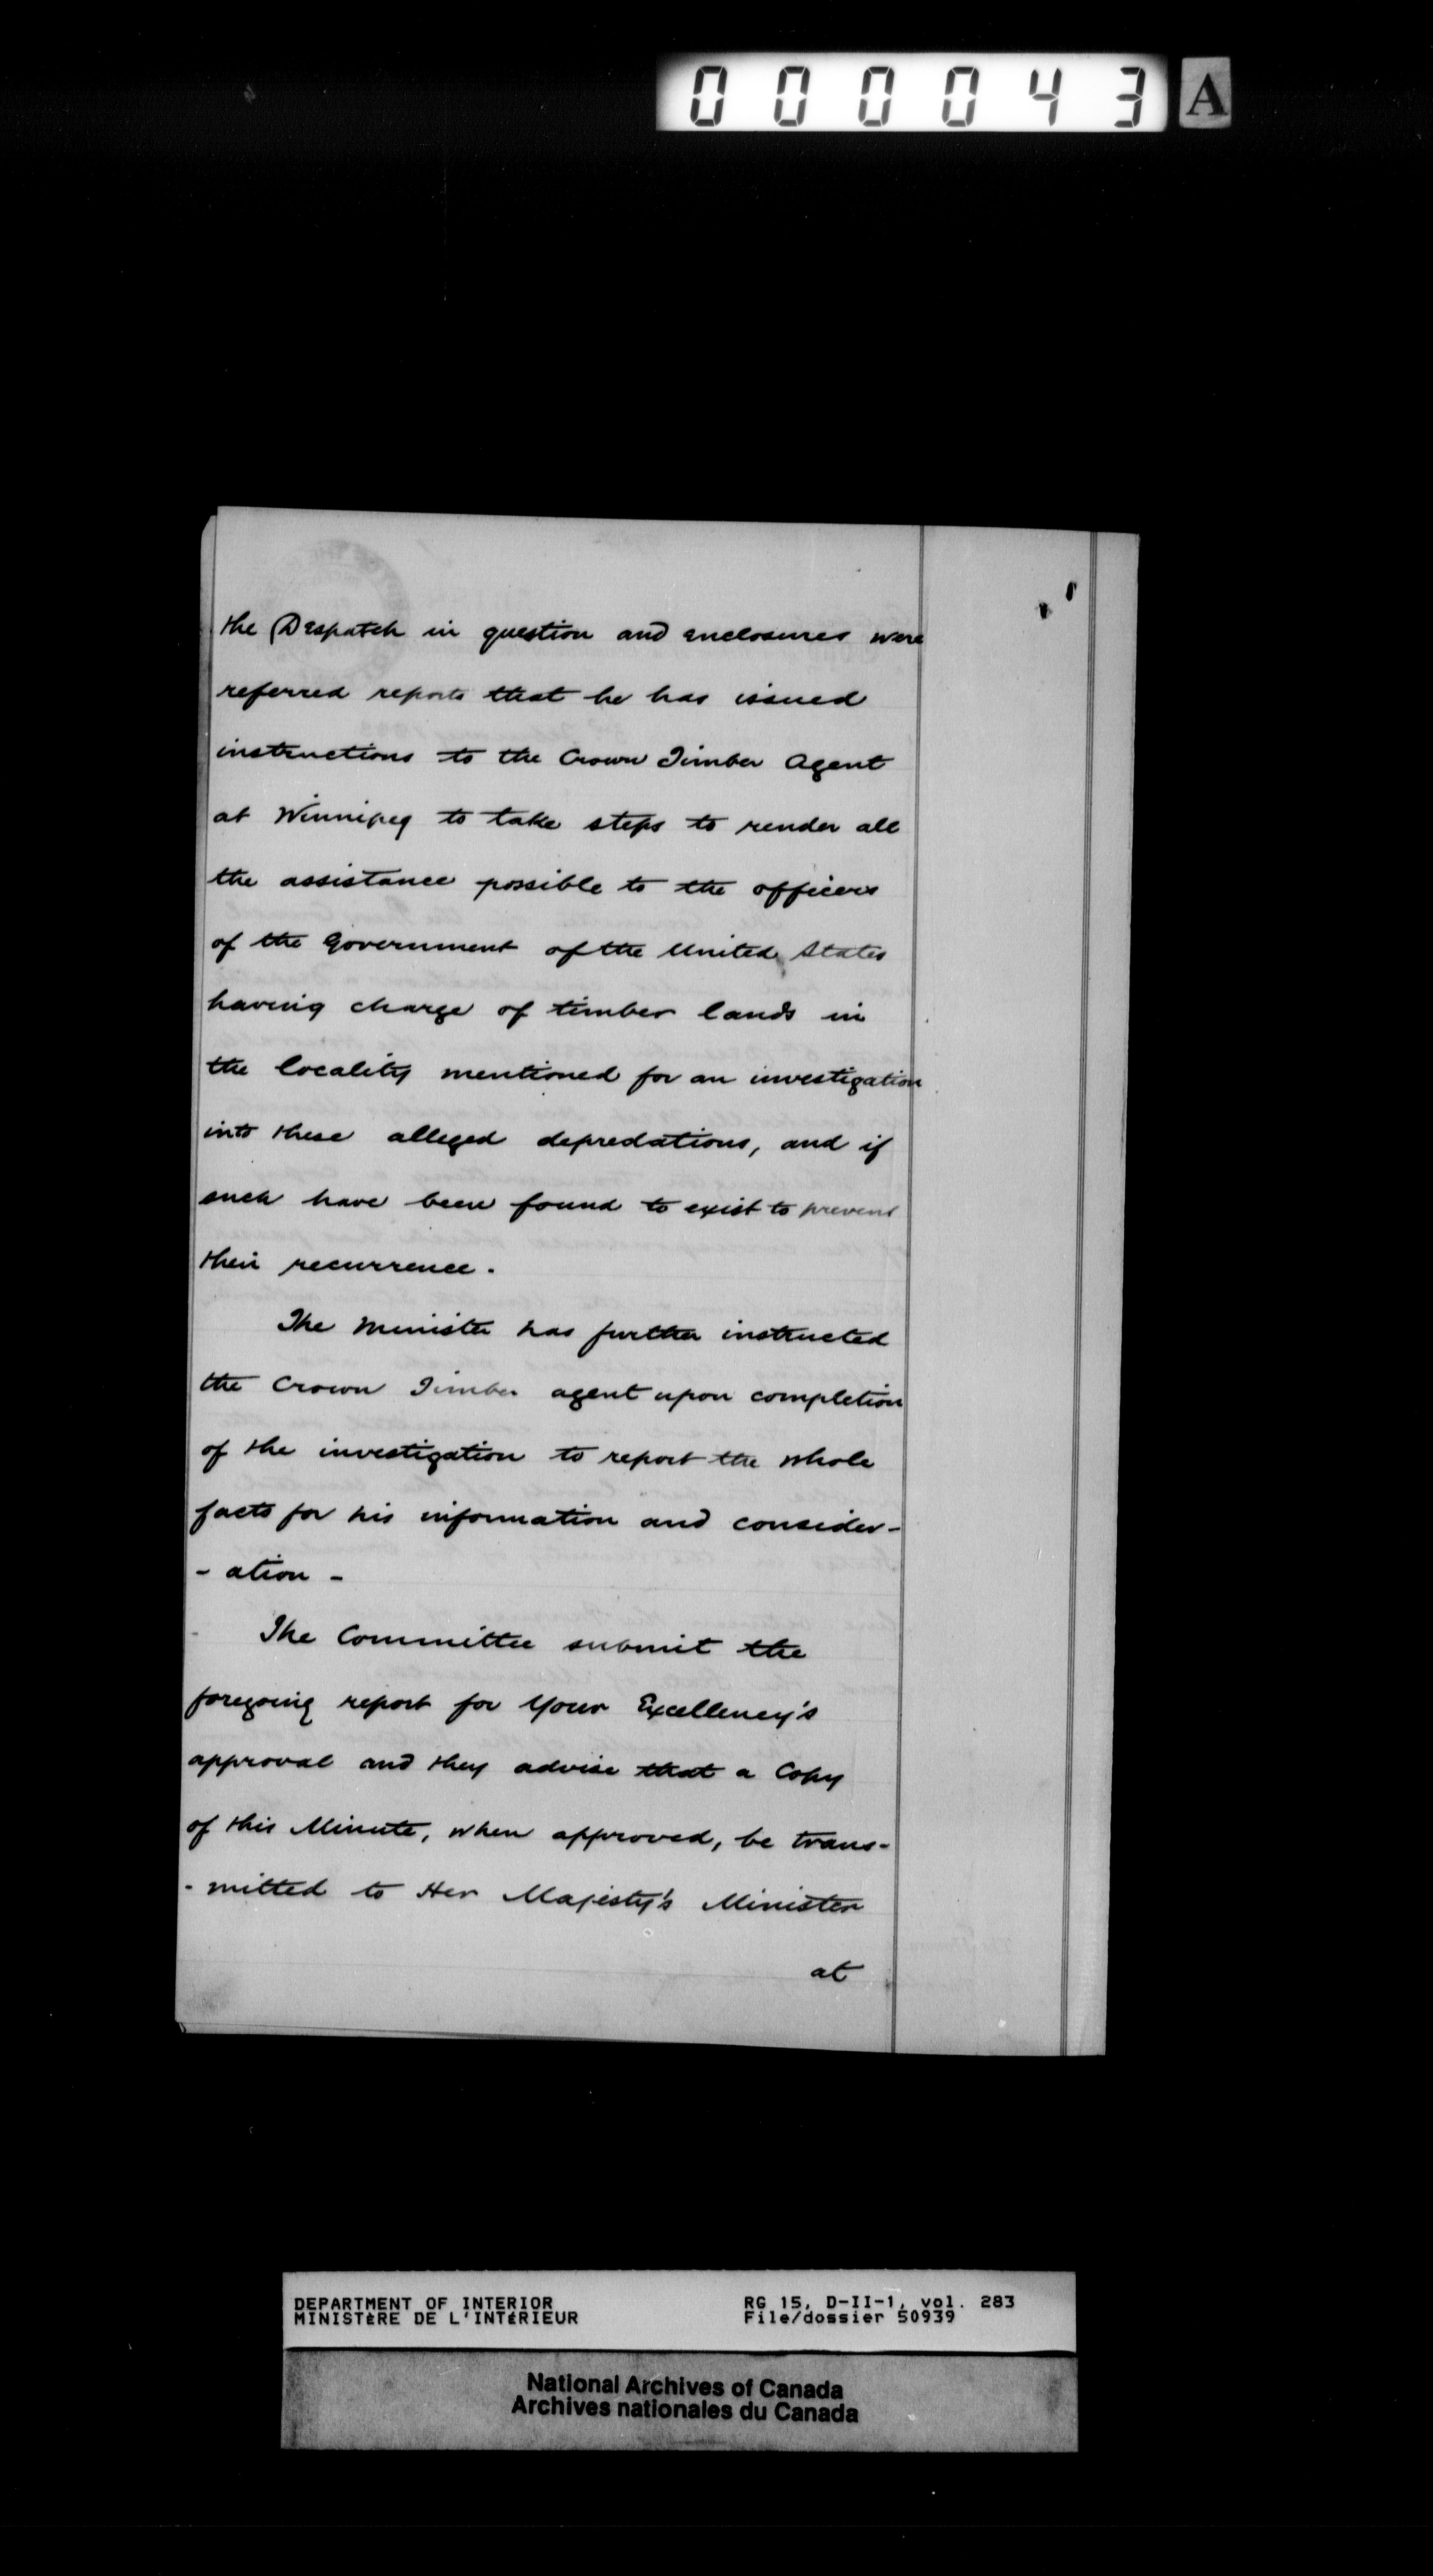 000043 A
the Despatch in question and enclosures were
referred reports that he has issued
instructions to the Crown Timber Agent
at Winnipeg to take steps to render all
the assistance possible to the officers
of the Government of the United States
having charge of timber lands in
the locality mentioned for an investigation
into these alleged depredations, and if
such have been found to exist to prevent
their recurrence.
The Minister has further instructed
the Crown Timber agent upon completion
of the investigation to report the whole
facts for his information and consider-
- ation -
The Committee submit the
foregoing report for Your Excellency's
approval and they advise that a Copy
of this Minute, when approved, be trans-
- mitted to Her Majesty's Minister
at
DEPARTMENT OF INTERIOR RG 15, D-II-1, vol. 283
MINISTÈRE DE L'INTÉRIEUR File/dossier 50939
National Archives of Canada
Archives nationales du Canada